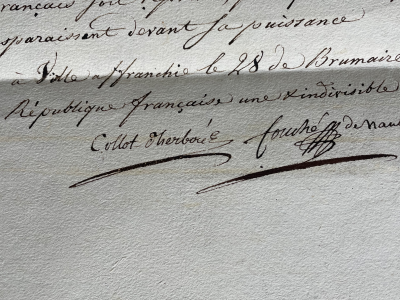 français soit
sparaissent devant sa puissance
à Ville affranchie le 28 de Brumaire
République française une & indivisible
Collot d'herbois Fouché de Nan